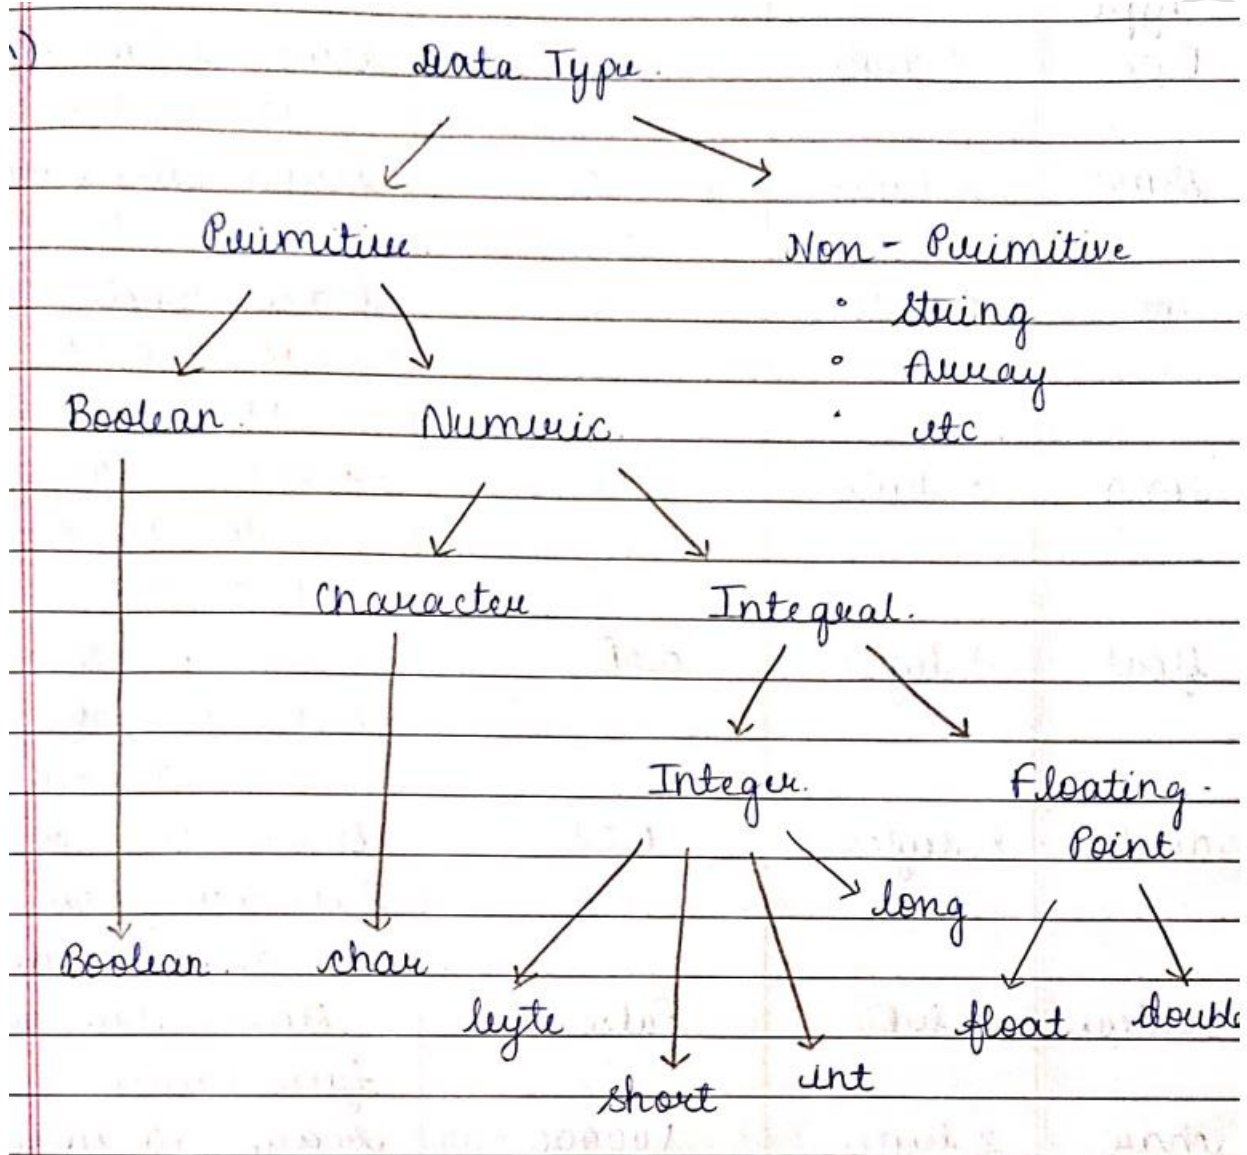 Data Type.
Primitive Non - Primitive
• String
• Array
• etc
Boolean. Numeric.
Character Integral.
Integer. Floating.
Point
long
Boolean. char
byte float double
short int